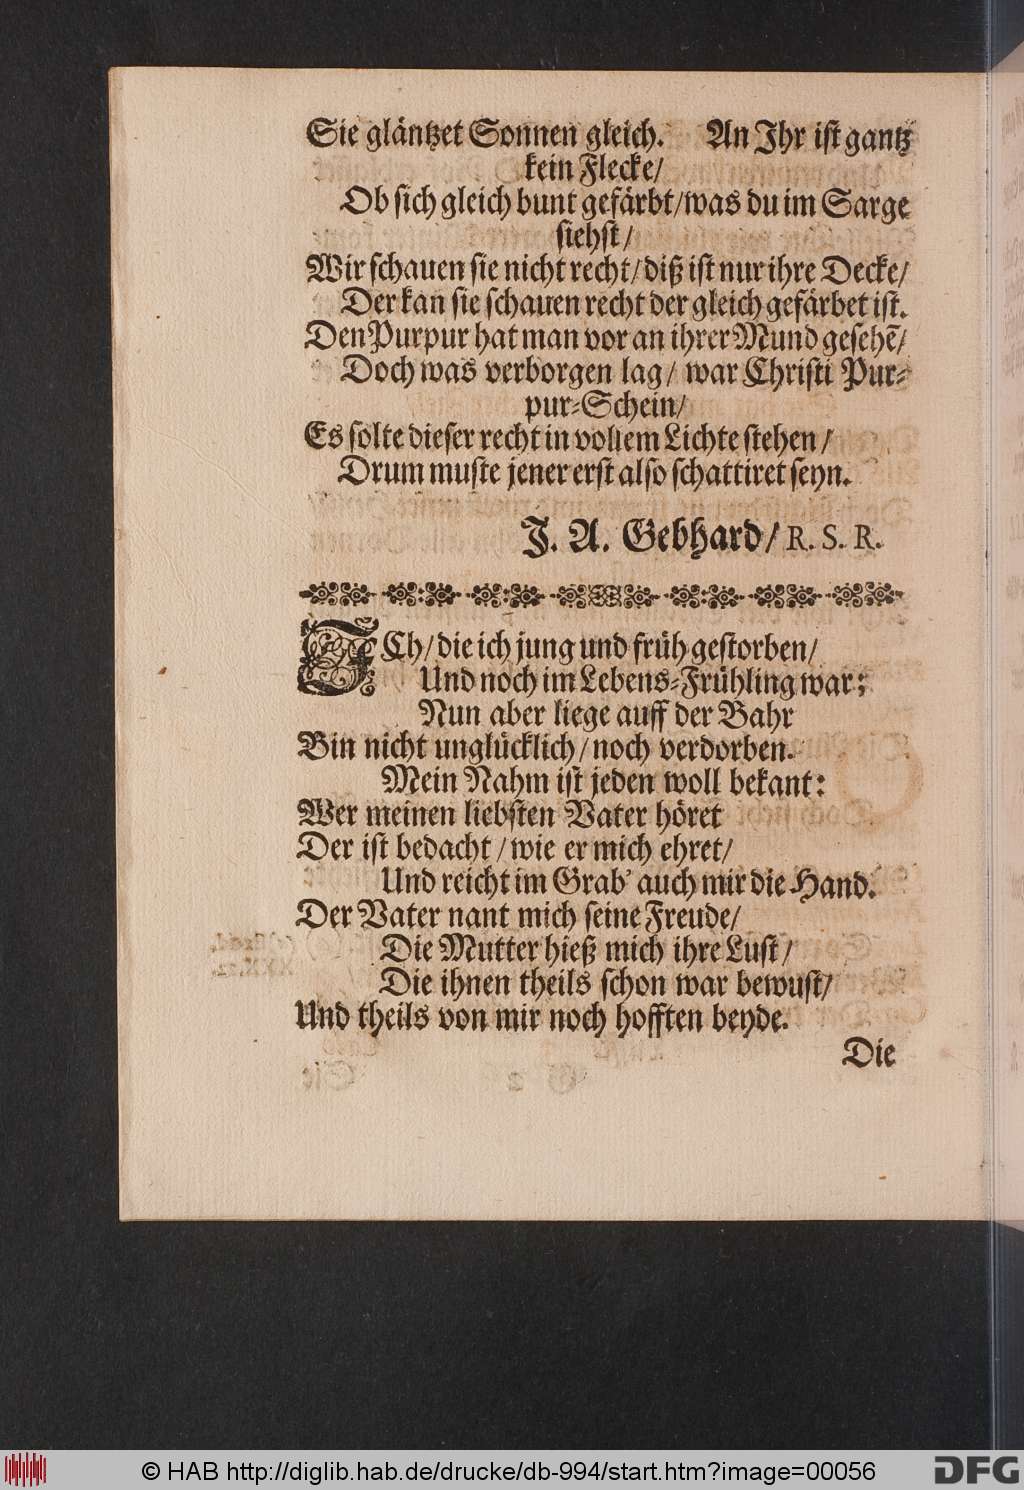 Sie gläntzet Sonnen gleich. An Ihr ist gantz
kein Flecke/
Ob sich gleich bunt gefärbt/was du im Sarge
siehst/
Wir schauen sie nicht recht/diß ist nur ihre Decke/
Der kan sie schauen recht der gleich gefärbet ist.
Den Purpur hat man vor an ihrer Mund gesehē/
Doch was verborgen lag/ war Christi Pur-
pur-Schein/
Es solte dieser recht in vollem Lichte stehen/
Drum muste jener erst also schattiret seyn.
J. A. Gebhard/ R. S. R.
ICh/die ich jung und früh gestorben/
Und noch im Lebens-Frühling war;
Nun aber liege auff der Bahr
Bin nicht unglücklich/noch verdorben.
Mein Nahm ist jeden woll bekant:
Wer meinen liebsten Vater höret
Der ist bedacht/wie er mich ehret/
Und reicht im Grab' auch mir die Hand.
Der Vater nant mich seine Freude/
Die Mutter hieß mich ihre Lust/
Die ihnen theils schon war bewust/
Und theils von mir noch hofften beyde.
Die
© HAB http://diglib.hab.de/drucke/db-994/start.htm?image=00056
DFG